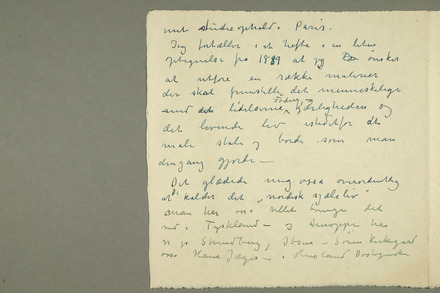 mit studieophold i Paris.
Jeg fortæller i et hefte i en liten
optegnelse fra 1889 at jeg ønsker
at utføre en række malerier
der skal fremstille det menneskelige
sind lidelserne, Døden, kjærligheden og
det levende liv istedetfor at
male stole og borde som man
dengang gjorde —
Det glædede mig også overordentlig
at De kalder det „nordisk sjæleliv"
man har os tillet bringe det
ned i Tyskland — og deroppe har
vi jo Strindberg, Ibsen — Sören Kirkegard
Hans Jæger — i Rusland Dostojewski